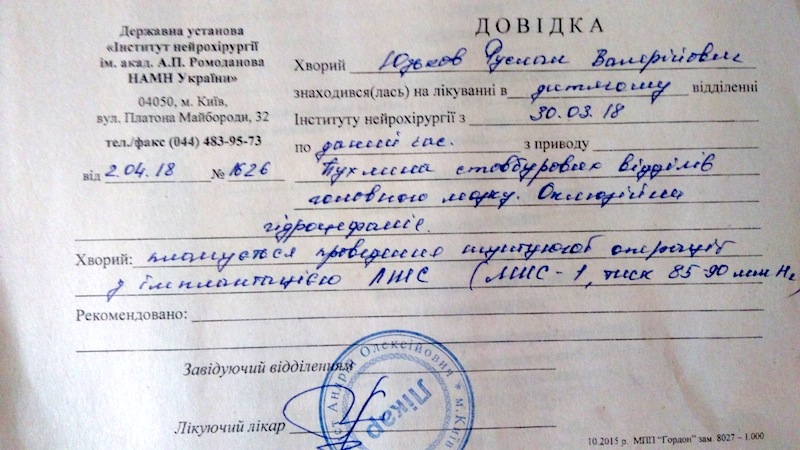 Державна установа
«Інститут нейрохірургії
ім. акад. А.П. Ромоданова
НАМН України»
04050, м. Київ,
вул. Платона Майбороди, 32
тел./факс (044) 483-95-73
від 2.04.18 № 1626
ДОВІДКА
Хворий Руслан Валерійович
знаходився(лась) на лікуванні в дитячому відділенні
Інституту нейрохірургії з 30.03.18
по даний час. з приводу
Пухлина стовбурових відділів
головного мозку. Оклюзійна
гідроцефалія.
Хворий: планується проведення шунтуючої операції
з імплантацією ЛШС (ЛШС-1, тиск 85-90 мм
Рекомендовано:
Завідуючий відділенням
Лікуючий лікар
Андрій Олексійович * м. Київ
Лікар
10.2015 р. МПП "Гордон" зам. 8027 – 1.000